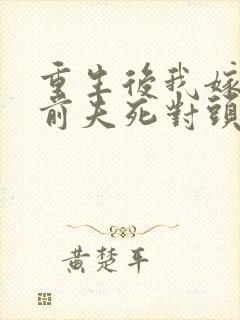 重生後我嫁
前夫死對頭
黃楚平